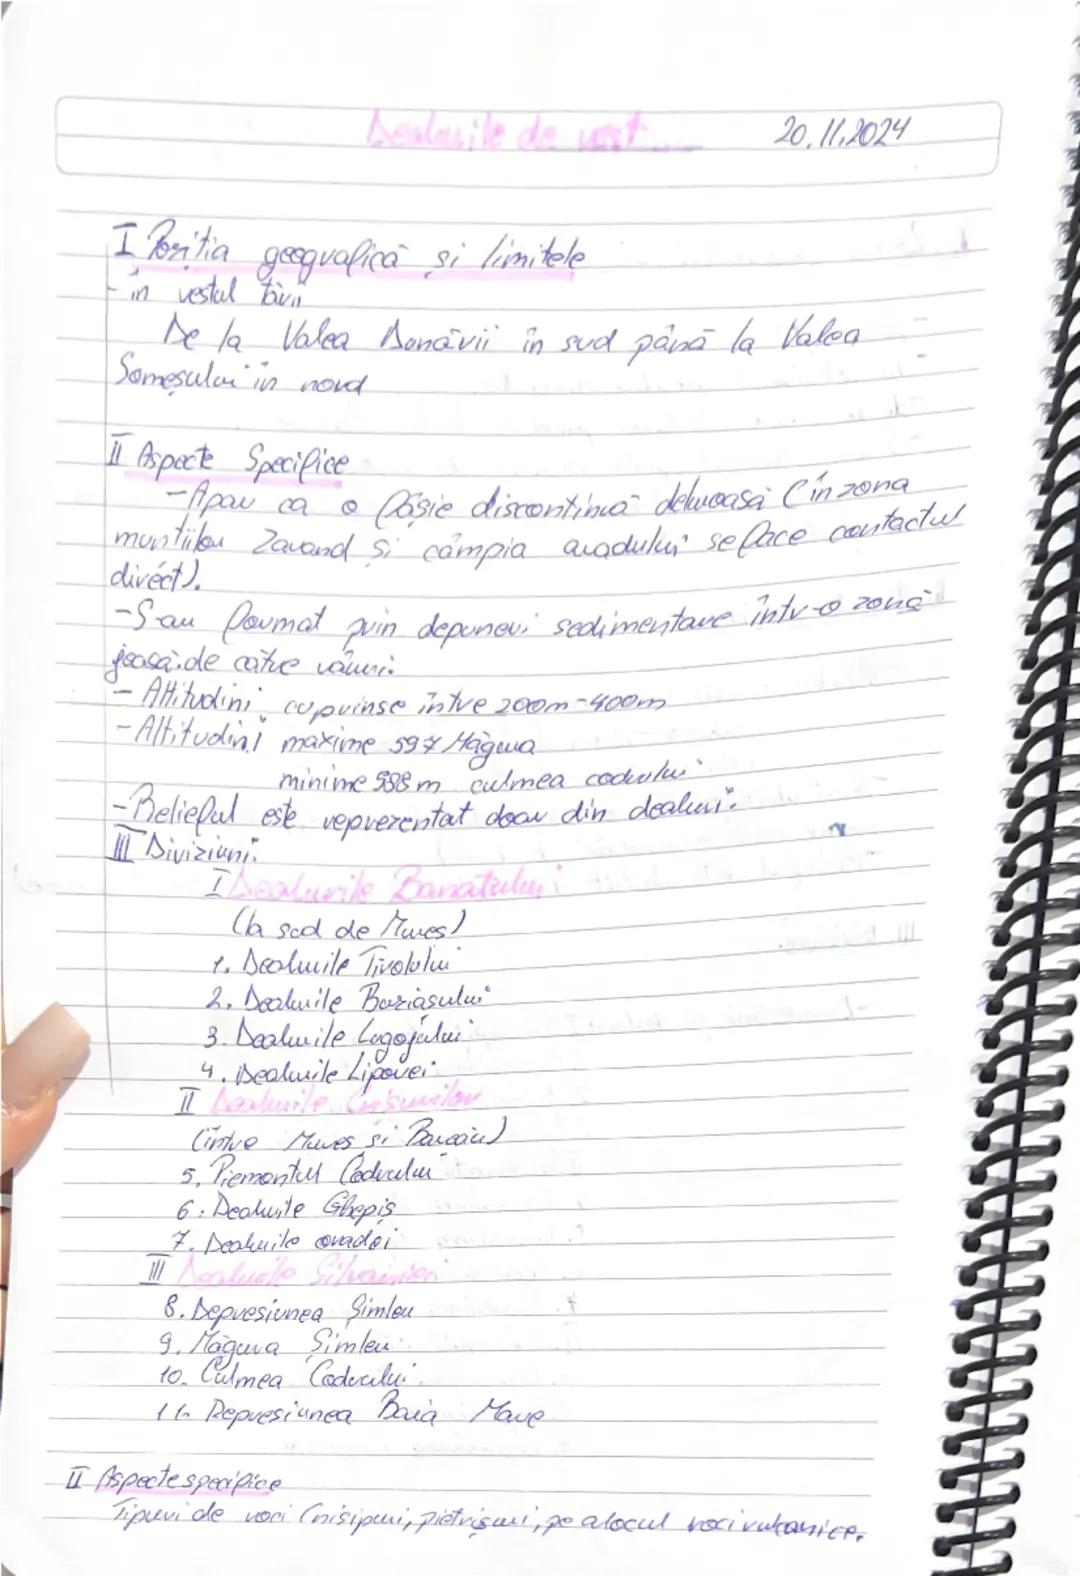 Dealurile de vest
20.11.2024
I Poziția geografică și limitele
- în vestul țării
De la Valea Dunării în sud până la Valea
Someșului în nord
II Aspecte Specifice
- Apar ca o fâșie discontinuă deluroasă (în zona
munților Zarand și câmpia aradului se face contactul
direct).
- S-au format prin depuneri sedimentare într-o zonă
joasă de către râuri.
- Altitudini cuprinse între 200m-400m
- Altitudini maxime 597 Măgura
minime 588 m culmea codrului
- Relieful este reprezentat doar din dealuri.
III Diviziuni:
I Dealurile Banatului
(la sud de Mureș)
1. Dealurile Tirolului
2. Dealurile Buziașului
3. Dealurile Lugojului
4. Dealurile Lipovei
II Dealurile Crișurilor
(între Mureș și Barcău)
5. Piemontul Codrului
6. Dealurile Ghepiș
7. Dealurile oradei
III Dealurile Silvaniei
8. Depresiunea Șimleu
9. Măgura Șimleu
10. Culmea Codrului
11. Depresiunea Baia Mare
II Aspecte specifice
Tipuri de roci (nisipuri, pietrișuri, pe alocul roci vulcanice.